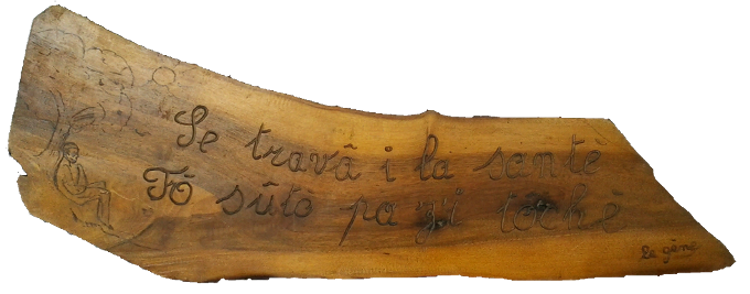 Se travâ i la santè
Fô sûto pa z'i tochè
Le gène